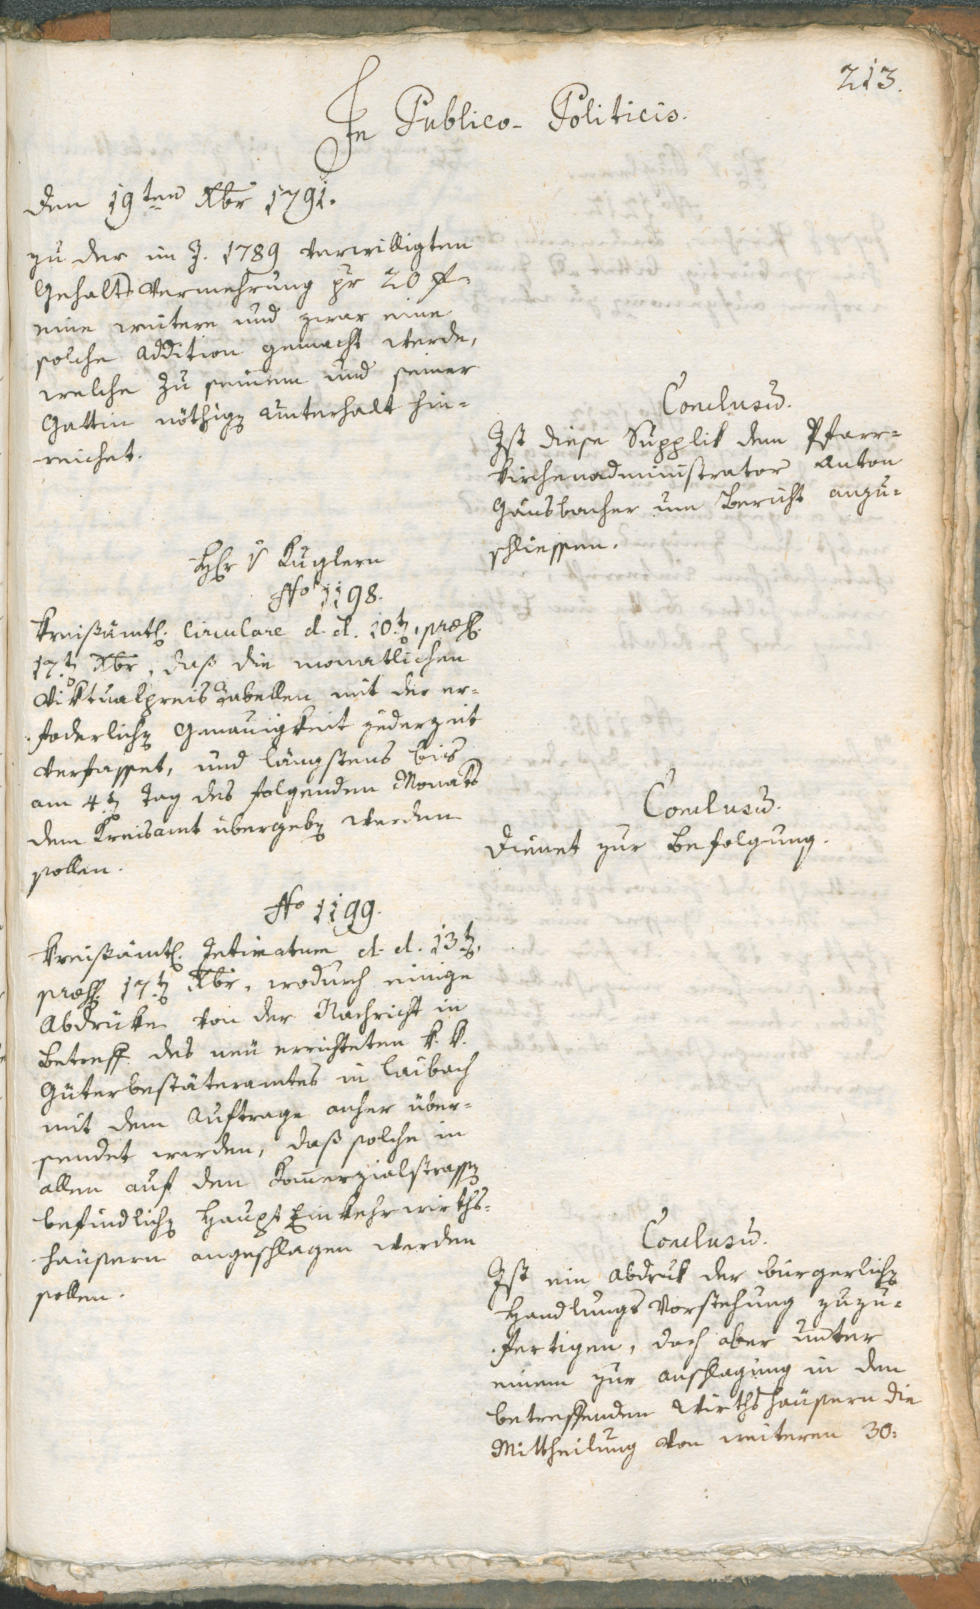 213.
In Publico-Politicis.
den 19ten Xbr 1791.
zu der im J. 1789 verwilligten
Gehalts Vermehrung pr 20 f
eine weitere und zwar eine
solche Addition gemacht werde,
welche zu seinem und seiner
Gattin nöthigen Unterhalt hin-
reichet.
Conclusum.
Ist diese Supplik dem Pfarr-
kirchenadministrator Anton
Gänsbacher um Bericht anzu-
schliessen.
Hr v Kuglern
No 1198.
Kreißämtl. Circulare d. d. 10.t, præs.
17.t Xbr, daß die monatlichen
Viktualpreis Tabellen mit der er-
foderlichen Genauigkeit jederzeit
verfasset, und längstens bis
am 4.t Tag des folgenden Monats
dem Kreisamt übergeben werden
sollen.
Conclusum.
Dienet zur Befolgung.
No 1199.
Kreißämtl. Intimatum d. d. 13t,
præs. 17.t Xbr, wodurch einige
Abdrüke von der Nachricht in
Betreff des neü errichteten k. k.
Güterbestäteramtes in Laibach
mit dem Auftrage anher über-
sendet werden, daß solche in
allen auf den Komerzialstrassen
befindlichen Haupt Einkehrwirths-
häusern angeschlagen werden
sollen.
Conclusum.
Ist ein Abdruk der bürgerlichen
Handlungs Vorstehung zuzu-
fertigen, doch aber unter
einem zur Anschlagung in den
betreffenden Wirthshäusern die
Mittheilung von weiteren 30: